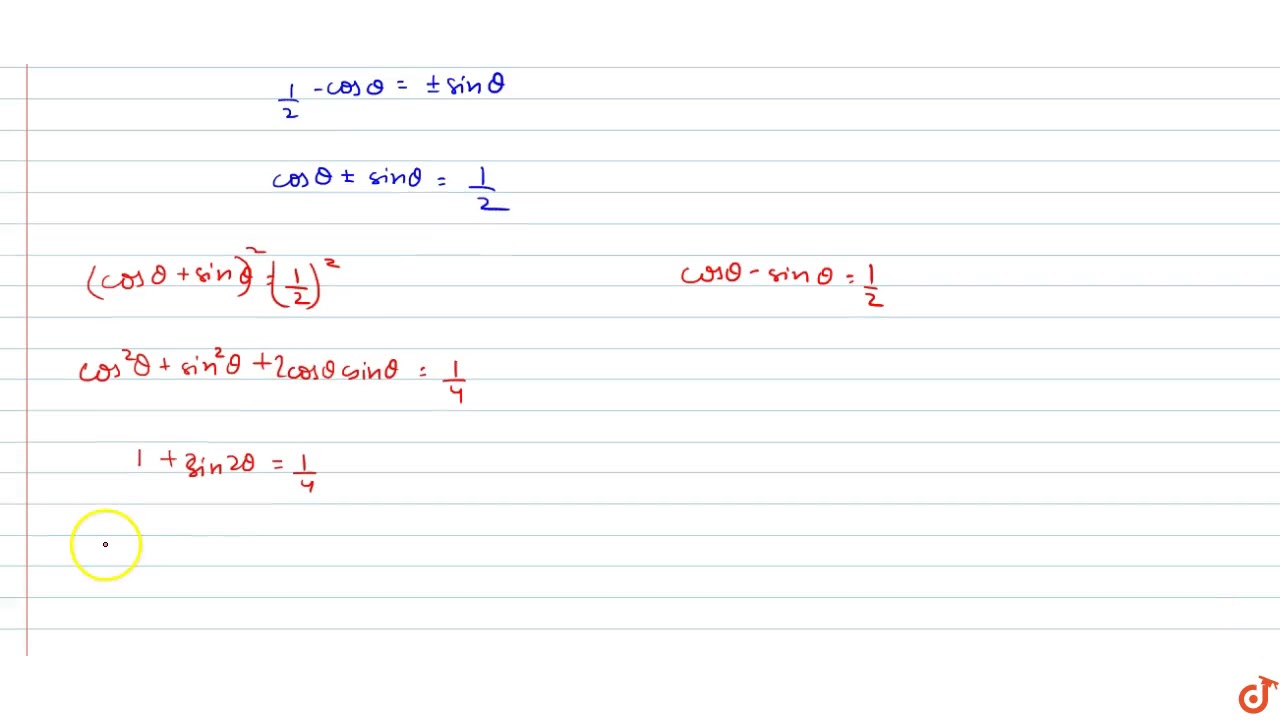 1/2 - cosθ = ± sinθ
cosθ ± sinθ = 1/2
(cosθ + sinθ)² = (1/2)²
cosθ - sinθ = 1/2
cos²θ + sin²θ + 2cosθ sinθ = 1/4
1 + sin2θ = 1/4